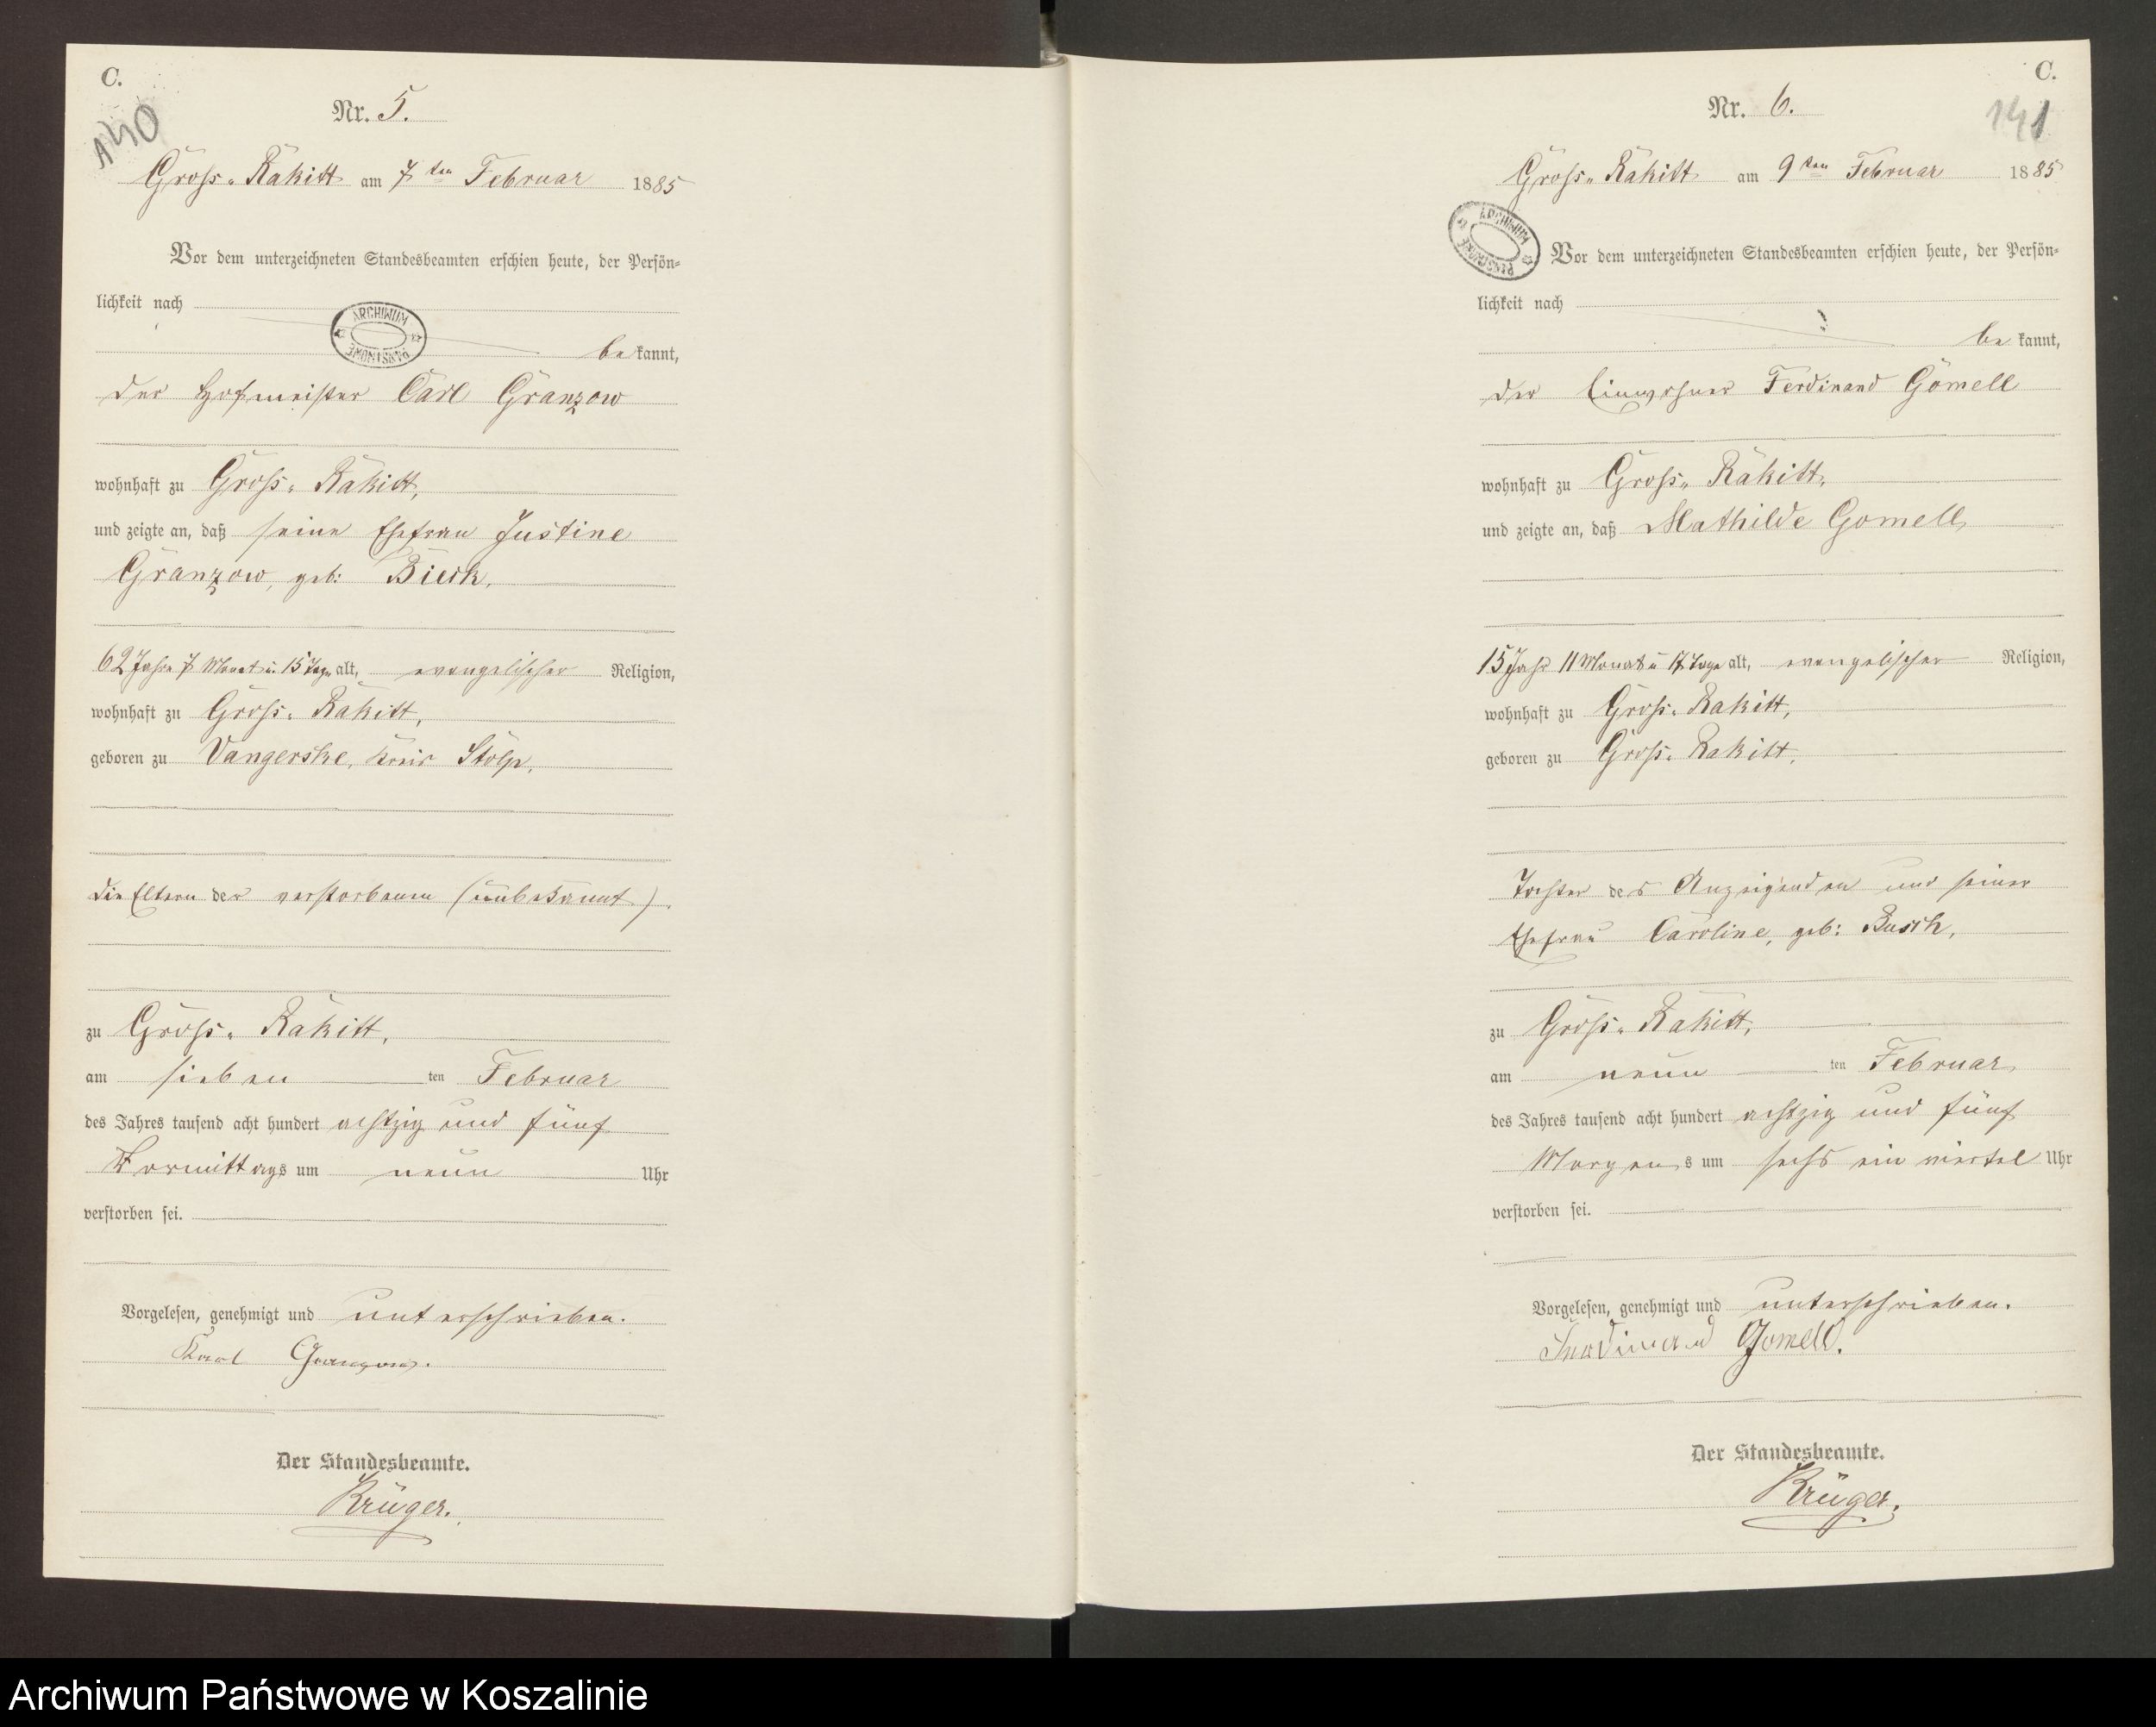 C.
140
Nr. 5.
Gross-Rakitt am 7ten Februar 1885
Vor dem unterzeichneten Standesbeamten erschien heute, der Persön-
lichkeit nach
ARCHIWUM PAŃSTWOWE
bekannt,
der Hofmeister Carl Granzow
wohnhaft zu Gross-Rakitt,
und zeigte an, daß seine Ehefrau Justine
Granzow, geb: Bieck,
62 Jahre 7 Monat u. 15 Tage alt, evangelischer Religion,
wohnhaft zu Gross-Rakitt,
geboren zu Vangerske, Kreis Stolp,
die Eltern der verstorbenen (unbekannt),
zu Gross-Rakitt,
am sieben ten Februar
des Jahres tausend acht hundert achtzig und fünf
Vormittags um neun Uhr
verstorben sei.
Vorgelesen, genehmigt und unterschrieben.
Karl Granzow.
Der Standesbeamte.
Krüger.
C.
141
Nr. 6.
Gross-Rakitt am 9ten Februar 1885
ARCHIWUM PAŃSTWOWE
Vor dem unterzeichneten Standesbeamten erschien heute, der Persön-
lichkeit nach
bekannt,
der Einwohner Ferdinand Gomell
wohnhaft zu Gross-Rakitt,
und zeigte an, daß Mathilde Gomell,
15 Jahr 11 Monat u 17 Tage alt, evangelischer Religion,
wohnhaft zu Gross-Rakitt,
geboren zu Gross-Rakitt,
Tochter des Anzeigenden und seiner
Ehefrau Caroline, geb: Busch,
zu Gross-Rakitt,
am neun ten Februar
des Jahres tausend acht hundert achtzig und fünf
Morgens um sechs ein viertel Uhr
verstorben sei.
Vorgelesen, genehmigt und unterschrieben.
Ferdinand Gomell.
Der Standesbeamte.
Krüger.
Archiwum Państwowe w Koszalinie